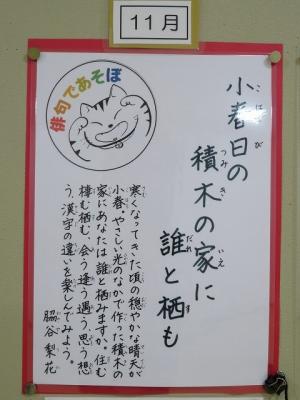 11月
俳句であそぼ
小春日の
積木の家に
誰と栖も
こはるび
つみき
いえ
だれ
す
寒くなってきた頃の穏やかな晴天が
小春。やさしい光のなかで作った積木の
家にあなたは誰と栖みますか。住む
棲む栖む、会う逢う遇う、思う想
う、漢字の違いを楽しんでみよう。
脇谷 梨花